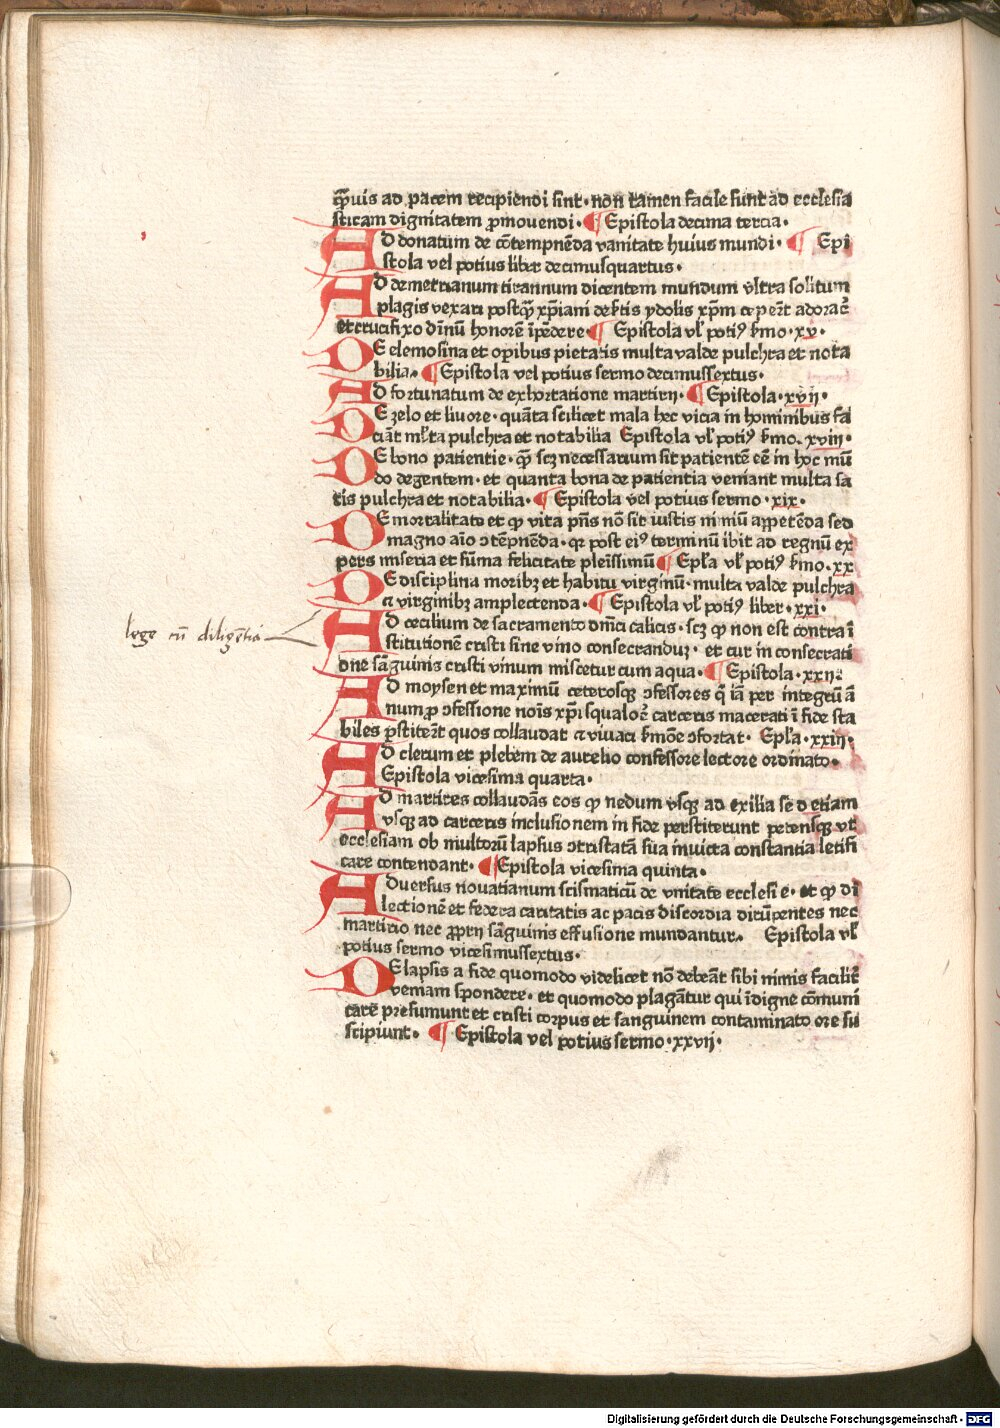 q̄uis ad pacem recipiendi sint· non tamen facile sunt ad ecclesia
sticam dignitatem ꝓmouendi· ¶ Epistola decima tercia·
AD donatum de cōtempnēda vanitate huius mundi· ¶ Epi
stola vel potius liber decimusquartus·
AD demetrianum tirannum dicentem mundum vltra solitum
plagis vexari postq̄ xp̄iani
et crucifixo dīnū honorē īpēdere ¶ Epistola vl' poti9 s'mo·xv·
DE elemosina et operibus pietatis multa valde pulchra et nota
bilia· ¶ Epistola vel potius sermo decimussextus·
AD fortunatum de exhortatione martirij· ¶ Epistola·xvij·
DE zelo et liuore· quāta scilicet mala hec vicia in hominibus fa
ciāt ml'ta pulchra et notabilia Epistola vl' poti9 s'mo·xviij·
DE bono patientie· q̄ scz necessarium sit patientē eē in hoc mū
do degentem· et quanta bona de patientia veniant multa sa
tis pulchra et notabilia· ¶ Epistola vel potius sermo·xix·
DE mortalitate et ꝙ vita p̄ns nō sit iustis nimiū appetēda sed
magno aīo ↄtēpnēda· qr post ei9 terminū ibit ad regnū ex
pers miseria et summa felicitate pleīssimū ¶ Ep̄l'a vl' poti9 s'mo·xx
DE disciplina moribz et habitu virginū· multa valde pulchra
a virginibz amplectenda· ¶ Epistola vl' poti9 liber·xxi·
lege cū diligētia
AD cecilium de sacramento dm̄ci calicis· scz ꝙ non est contra ī
stitutionē cristi sine vino consecranduz· et cur in consecrati
one sāguinis cristi vinum miscetur cum aqua· ¶ Epistola·xxij·
AD moysen et maximū ceterosqz ↄfessores q̄ iā per integrū ā
num ꝓ ↄfessione noīs xp̄i squalore carceris macerati ī fide sta
biles p̄stiterūt quos collaudat a viuaci s'mōe ↄfortat· Ep̄l'a·xxiij·
AD clerum et plebem de aurelio confessore lectore ordinato·
Epistola vicesima quarta·
AD martires collaudās eos ꝙ nedum vsqz ad exilia sed etiam
vsqz ad carceris inclusionem in fide perstiterunt petensqz vt
ecclesiam ob multorū lapsus ↄtristatā sua inuicta constantia letifi
care contendant· ¶ Epistola vicesima quinta·
ADuersus nouatianum scismaticū de vnitate ecclesie· et ꝙ di
lectionē et federa caritatis ac pacis discordia dirūpentes nec
martirio nec ꝓprij sāguinis effusione mundantur· Epistola vl'
potius sermo vicesimussextus·
DE lapsis a fide quomodo videlicet nō debeāt sibi nimis facilit'
veniam spondere· et quomodo plagātur qui īdigne cōmuni
care presumunt et cristi corpus et sanguinem contaminato ore su
scipiunt· ¶ Epistola vel potius sermo·xxvij·
Digitalisierung gefördert durch die Deutsche Forschungsgemeinschaft - DFG